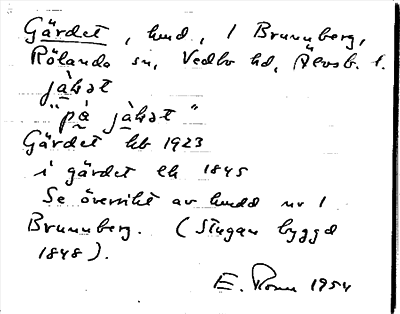 Gärdet, hmd, 1 Brunnberg,
Rölanda sn, Vedbo hd, Älvsb. l.
jàḷət
"pa jàḷət"
Gärdet hb 1923
i gärdet ek 1845
Se översikt av hmdd nr 1
Brunnberg. (Stugan byggd
1848).
E. 1954